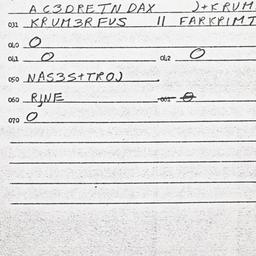 A C3DRETN DAX )+KRUM
031 KRUM3RFUS 11 FARKPIMT
040 O
041 O 042 O
050 NAS3S+TROJ
060 RJNE 061 O
070 O